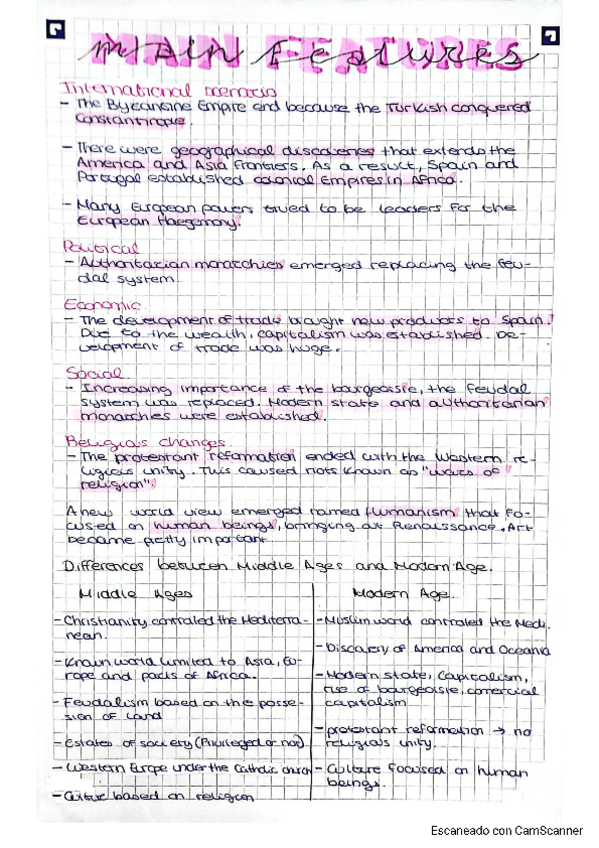 MAIN FEATURES
International scenario
- The Byzansine Empire end because the Turkish conquered
Constantinople.
- There were geographical discoveries that extends the
America and Asia frontiers. As a result, Spain and
Portugal established colonial Empires in Africa.
- Many European powers tried to be leaders for the
European Haegemony.
Political
- Authoritarian monarchies emerged replacing the feu-
dal system.
Economic
- The development of trade brought new products to Spain.
Due to the wealth, capitalism was established. De-
velopment of trade was huge.
Social
- Increasing importance of the bourgeoisie, the feudal
system was replaced. Modern state and authoritarian
monarchies were established.
Religious changes
- The protestant reformation ended with the Western re-
ligious unity. This caused riots known as "wars of
religion".
A new world view emerged named Humanism that fo-
cused on human beings, bringing at Renaissance. Art
became pretty important
Differences between Middle Ages and Modern Age.
Middle Ages
- Christianity controled the Mediterra-
nean.
- Known world limited to Asia, Eu-
rope and parts of Africa.
- Feudalism based on the posse-
sion of land
- Estates of society (Privileged or not)
- Western Europe under the Catholic church
- Cultur based on religion
Modern Age.
- Muslim world controled the Medi.
- Discovery of America and Oceania
- Modern state, Capitalism,
rise of bourgeoisie, comercial
capitalism
- protestant reformation → no
religious unity.
- Culture focused on human
beings.
Escaneado con CamScanner